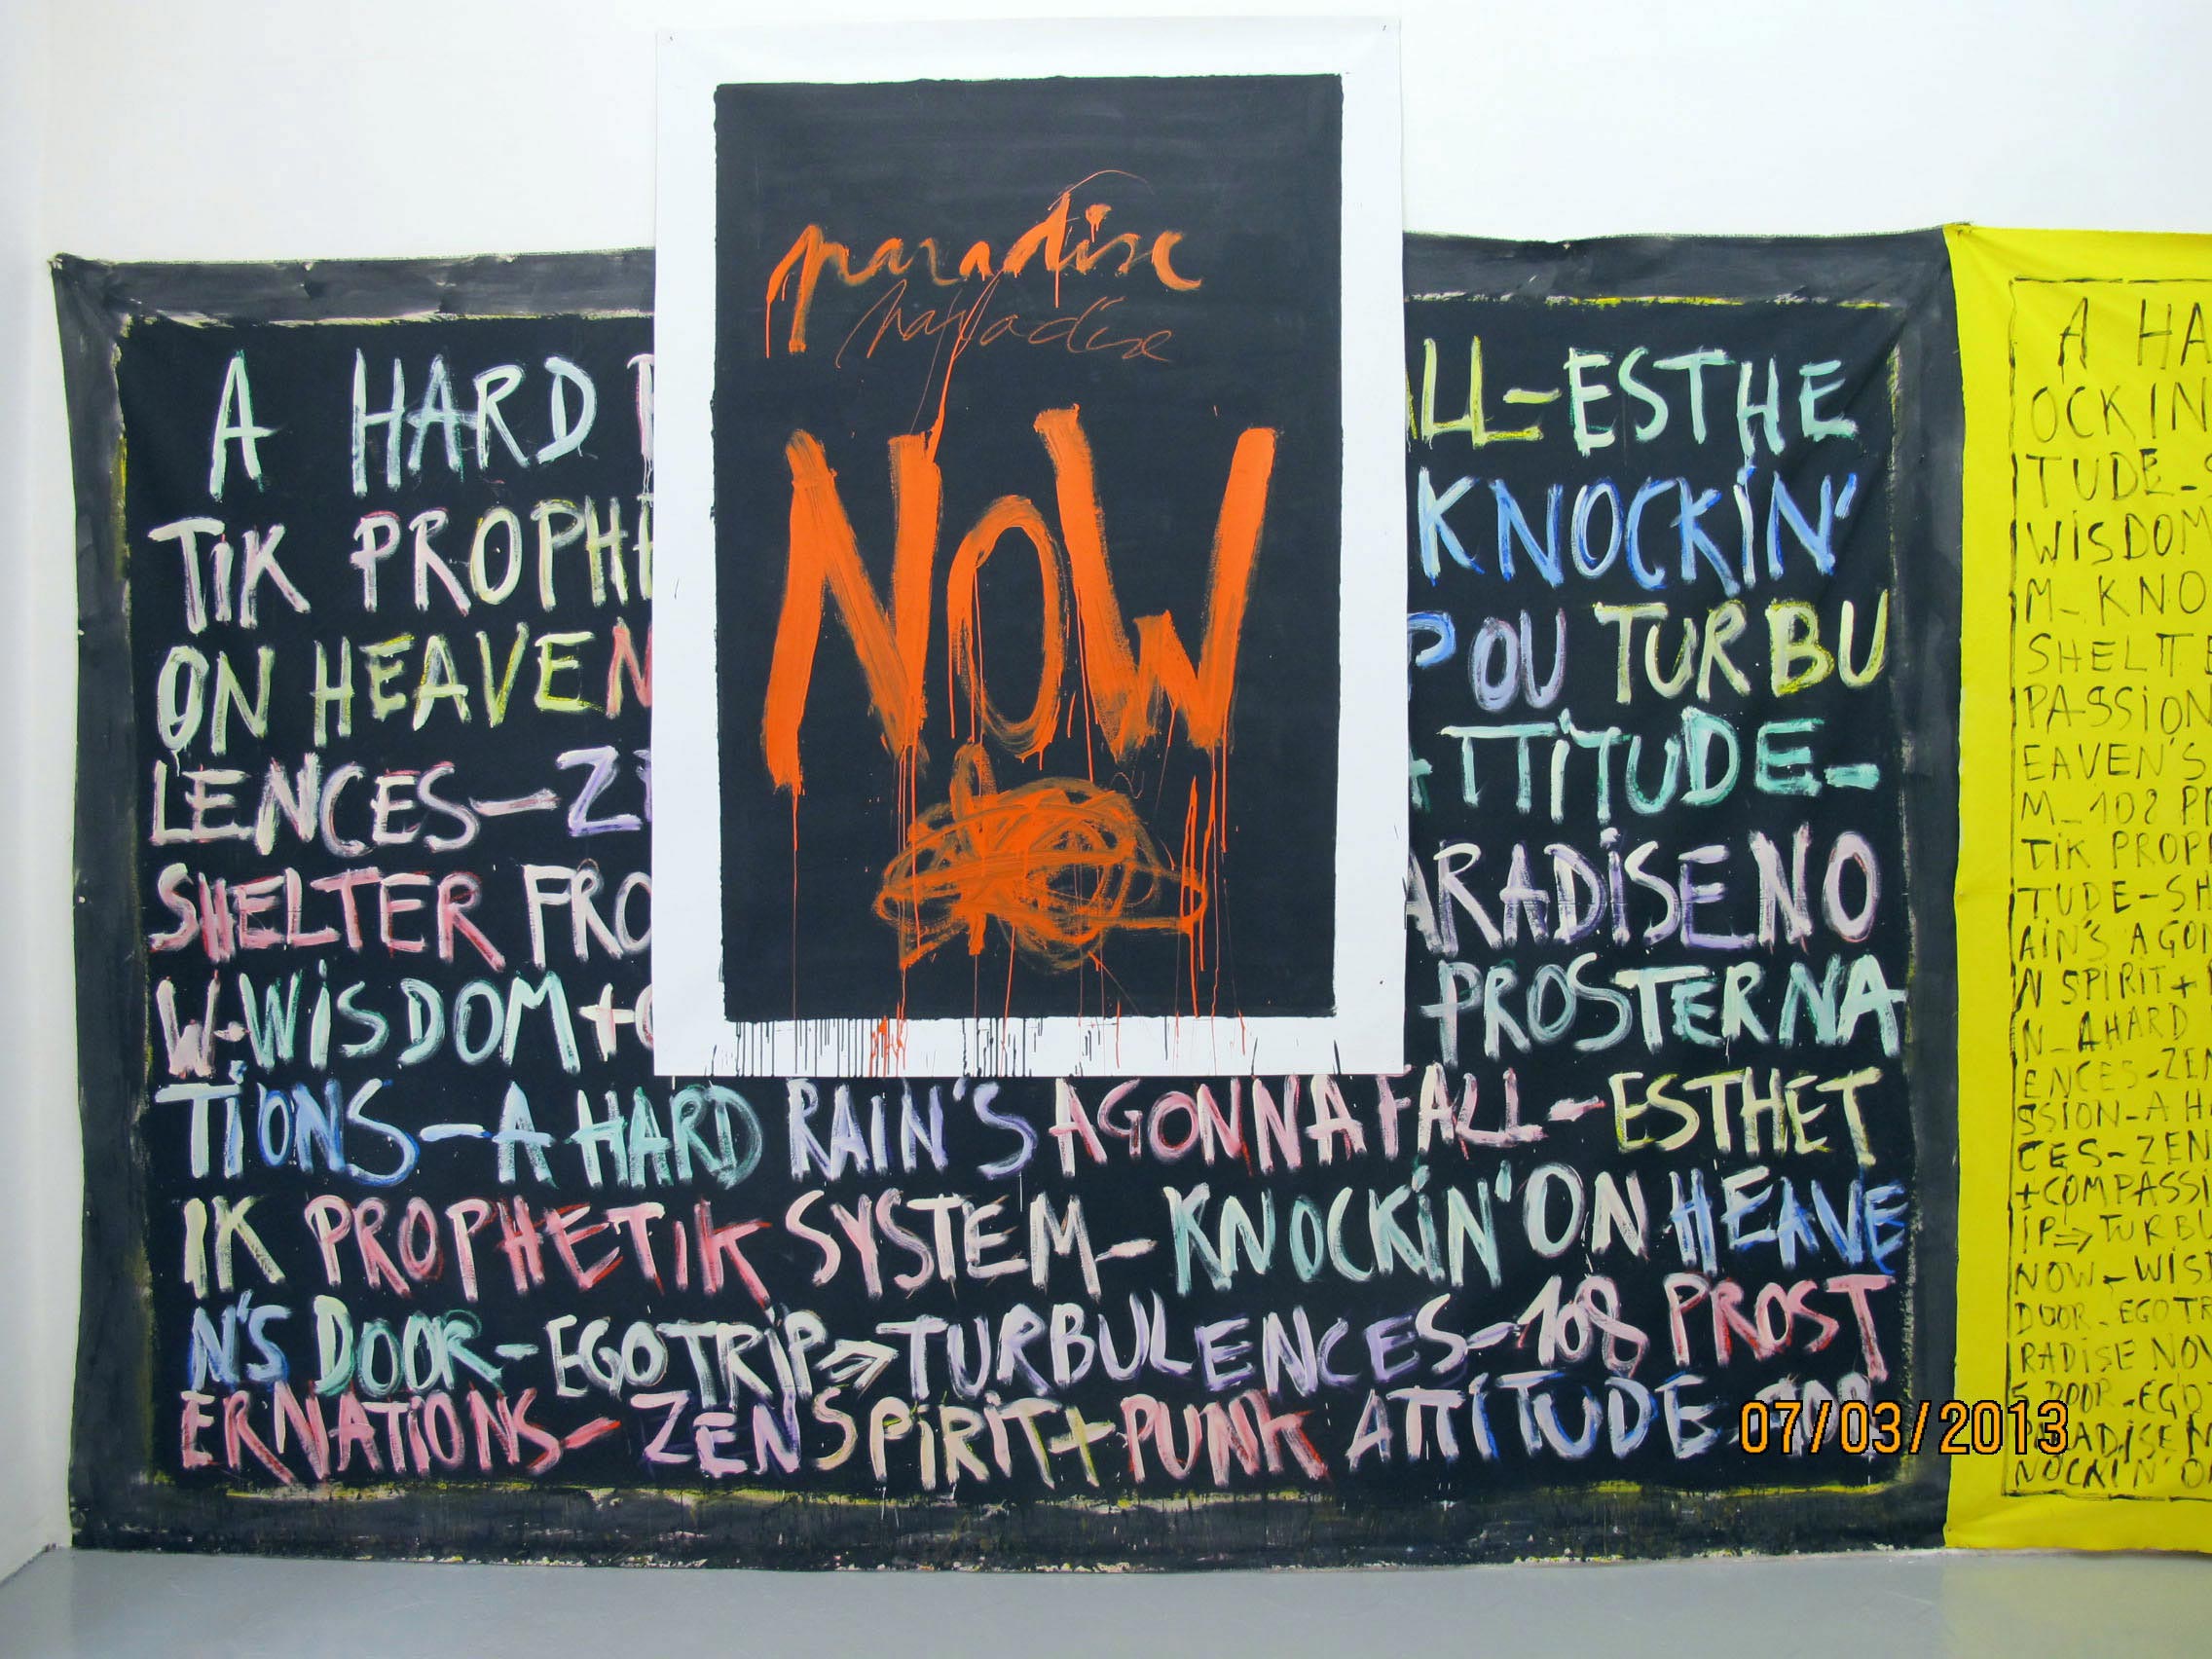 paradise
paradise
NOW
A HARD
ALL-ESTHE
TIK PROPHE
KNOCKIN'
ON HEAVEN
POU TURBU
LENCES-ZE
ATTITUDE-
SHELTER FRO
ARADISE NO
W-WISDOM+C
+PROSTERNA
TIONS-A HARD RAIN'S AGONNA FALL-ESTHET
IK PROPHETIK SYSTEM-KNOCKIN' ON HEAVE
N'S DOOR-EGOTRIP⇒TURBULENCES-108 PROST
ERNATIONS-ZEN SPIRIT+PUNK ATTITUDE-108
A HA
OCKIN
TUDE-S
WISDOM
M-KNO
SHELTE
PASSION
EAVEN'S
M-108 PR
TIK PROP
TUDE-SH
AIN'S AGON
N SPIRIT+
N-AHARD
ENCES-ZEN
SSION-A H
CES-ZEN
+COMPASSI
IP⇒TURBU
NOW-WIS
DOOR-EGOTR
RADISE NOW
S DOOR-EGO
ARADISE N
NOCKIN' O
07/03/2013